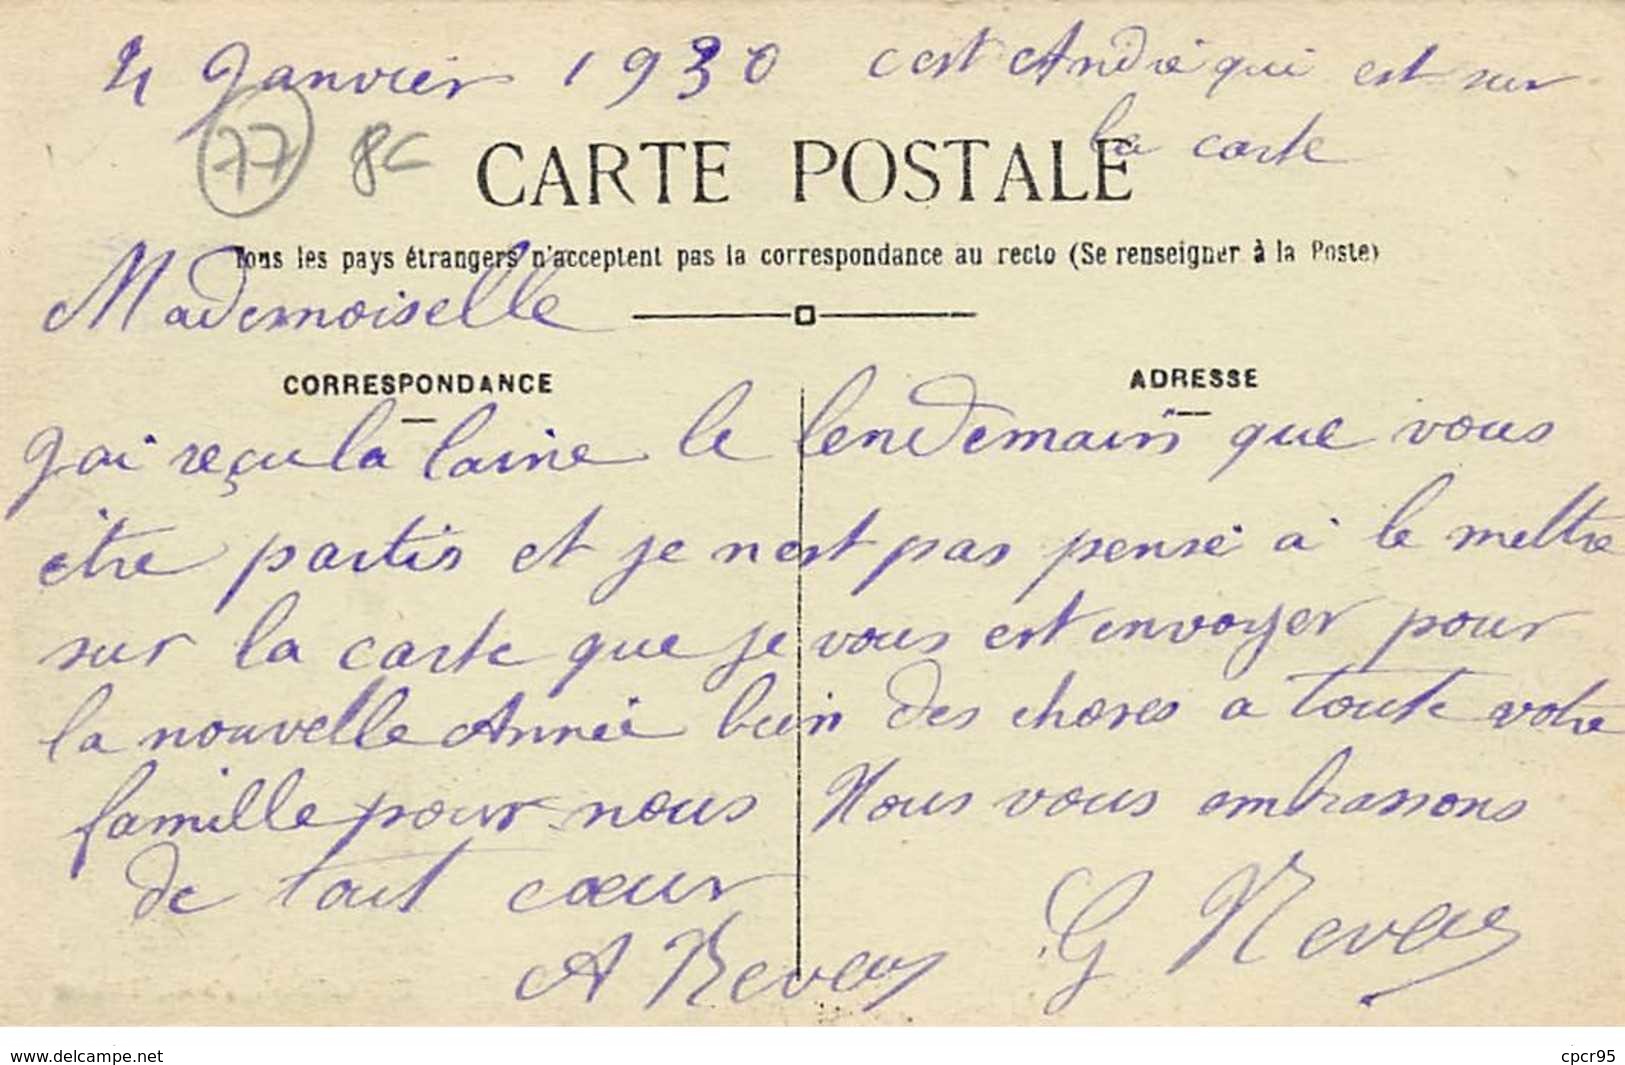 4 Janvier 1930 cest André qui est sur
la carte
77 8C
CARTE POSTALE
Tous les pays étrangers n'acceptent pas la correspondance au recto (Se renseigner à la Poste)
Mademoiselle
CORRESPONDANCE
ADRESSE
J'ai reçu la laine le lendemain que vous
être partis et je nest pas pensé à le mettre
sur la carte que je vous est envoyer pour
la nouvelle Année bien des choses a toute votre
famille pour nous Nous vous embrassons
de tout cœur
A G
www.delcampe.net
cpcr95